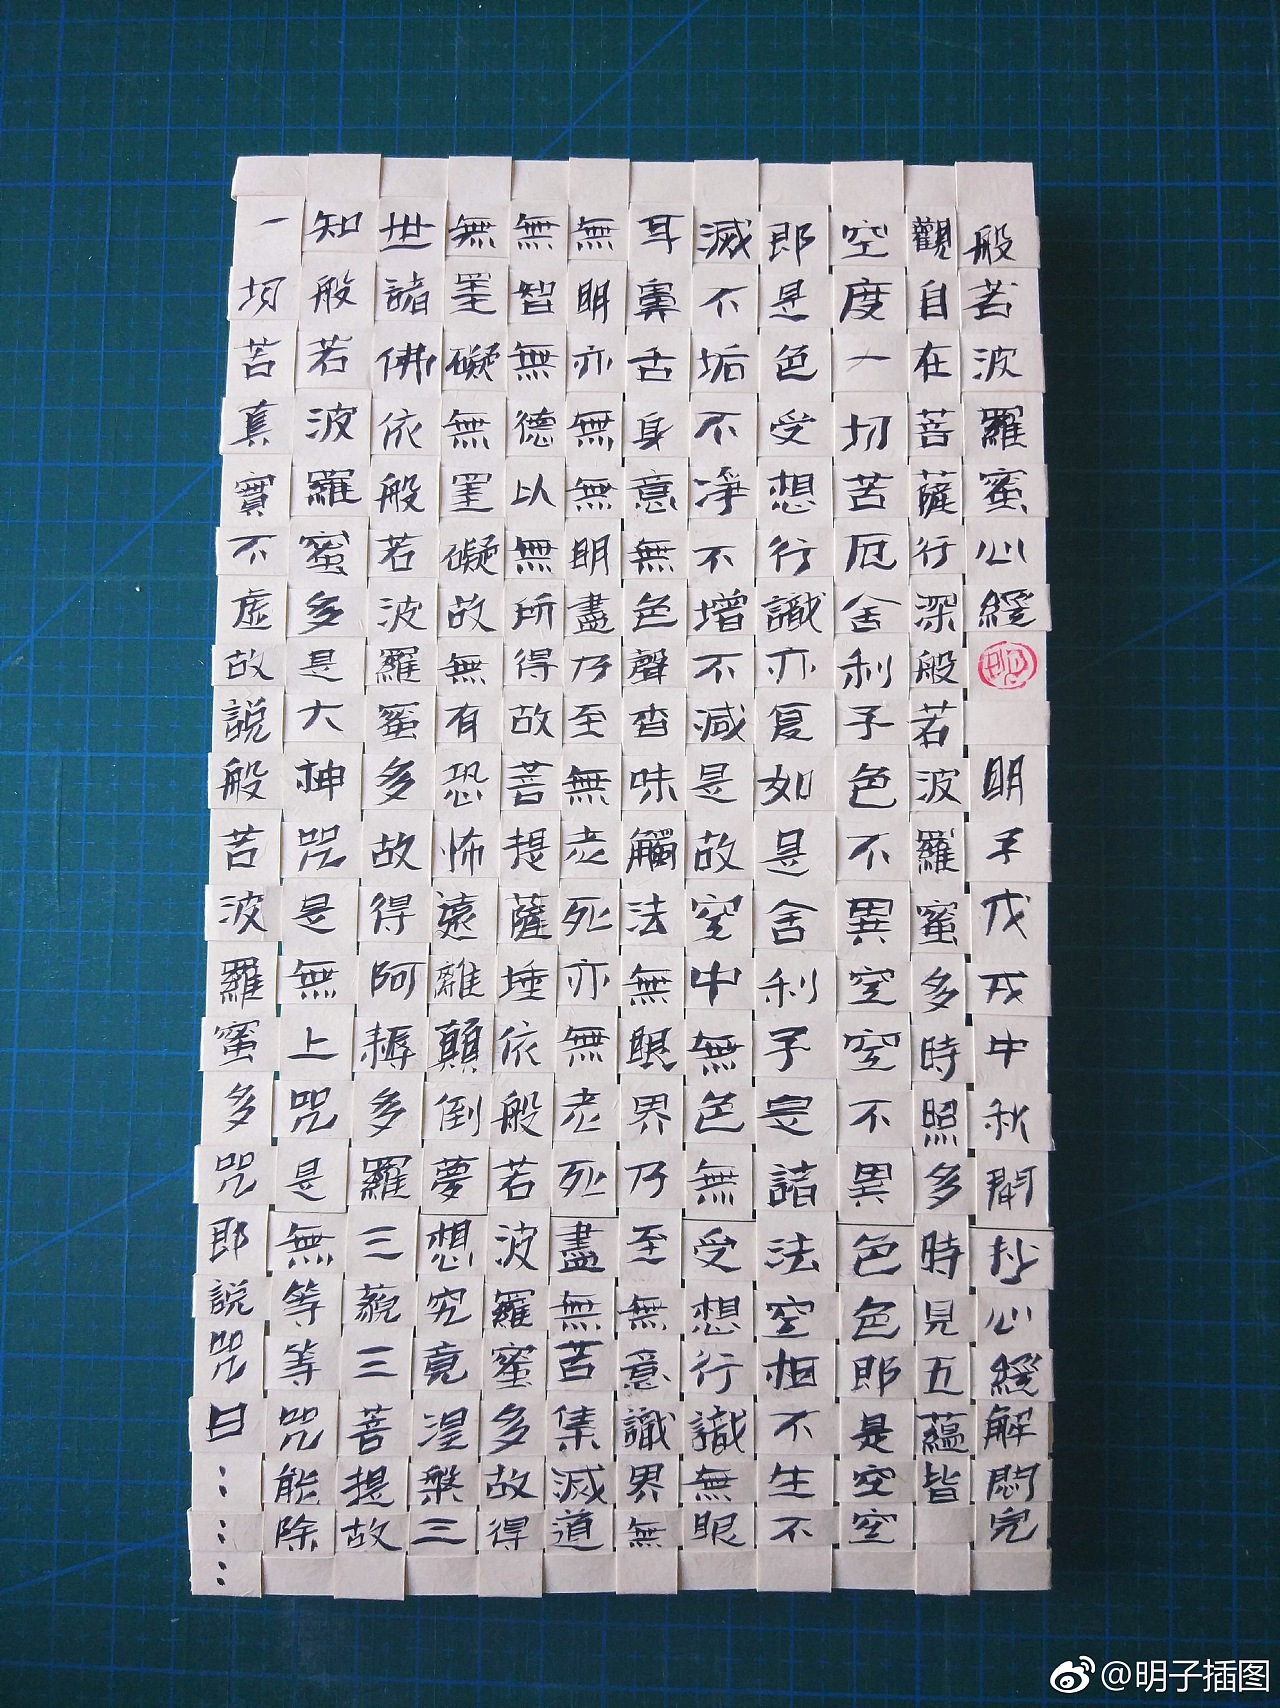 般若波羅蜜心經
明子戊戌中秋間抄心經解悶完
觀自在菩薩行深般若波羅蜜多時照多時見五蘊皆
空度一切苦厄舍利子色不異空空不異色色即是空空
即是色受想行識亦复如是舍利子是諸法空相不生不
滅不垢不淨不增不減是故空中無色無受想行識無眼
耳鼻舌身意無色聲香味觸法無眼界乃至無意識界無
無明亦無無明盡乃至無老死亦無老死盡無苦集滅道
無智無德以無所得故菩提薩埵依般若波羅蜜多故得
無罣礙無罣礙故無有恐怖遠離顛倒夢想究竟涅槃三
世諸佛依般若波羅蜜多故得阿耨多羅三藐三菩提故
知般若波羅蜜多是大神咒是無上咒是無等等咒能除
一切苦真實不虛故說般若波羅蜜多咒即說咒曰：……
@明子插图